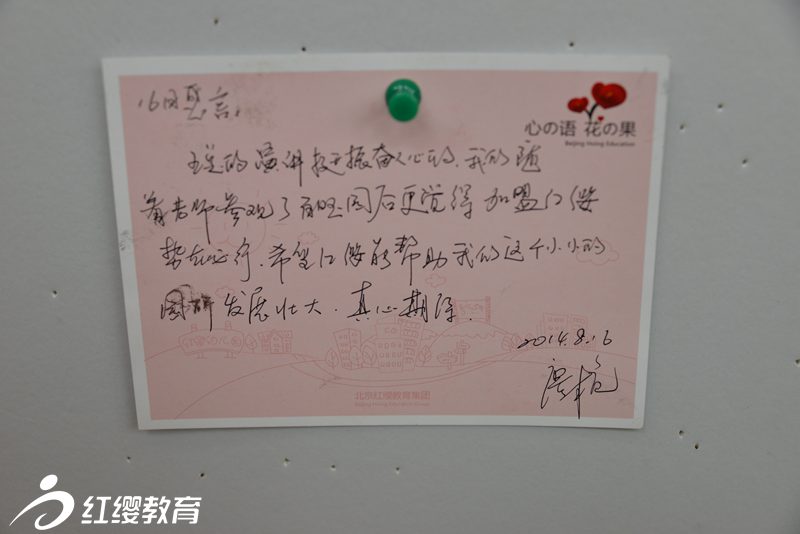 16日感言:
王总的演讲挺振奋人心的,我们随
着老师参观了百旺园后更觉得加盟红缨
势在必行,希望红缨能帮助我们这个小小的
园所发展壮大.真心期待.
2014.8.16
心の语 花の果
Beijing Hoing Education
北京红缨教育集团
Beijing Hoing Education Group
红缨教育